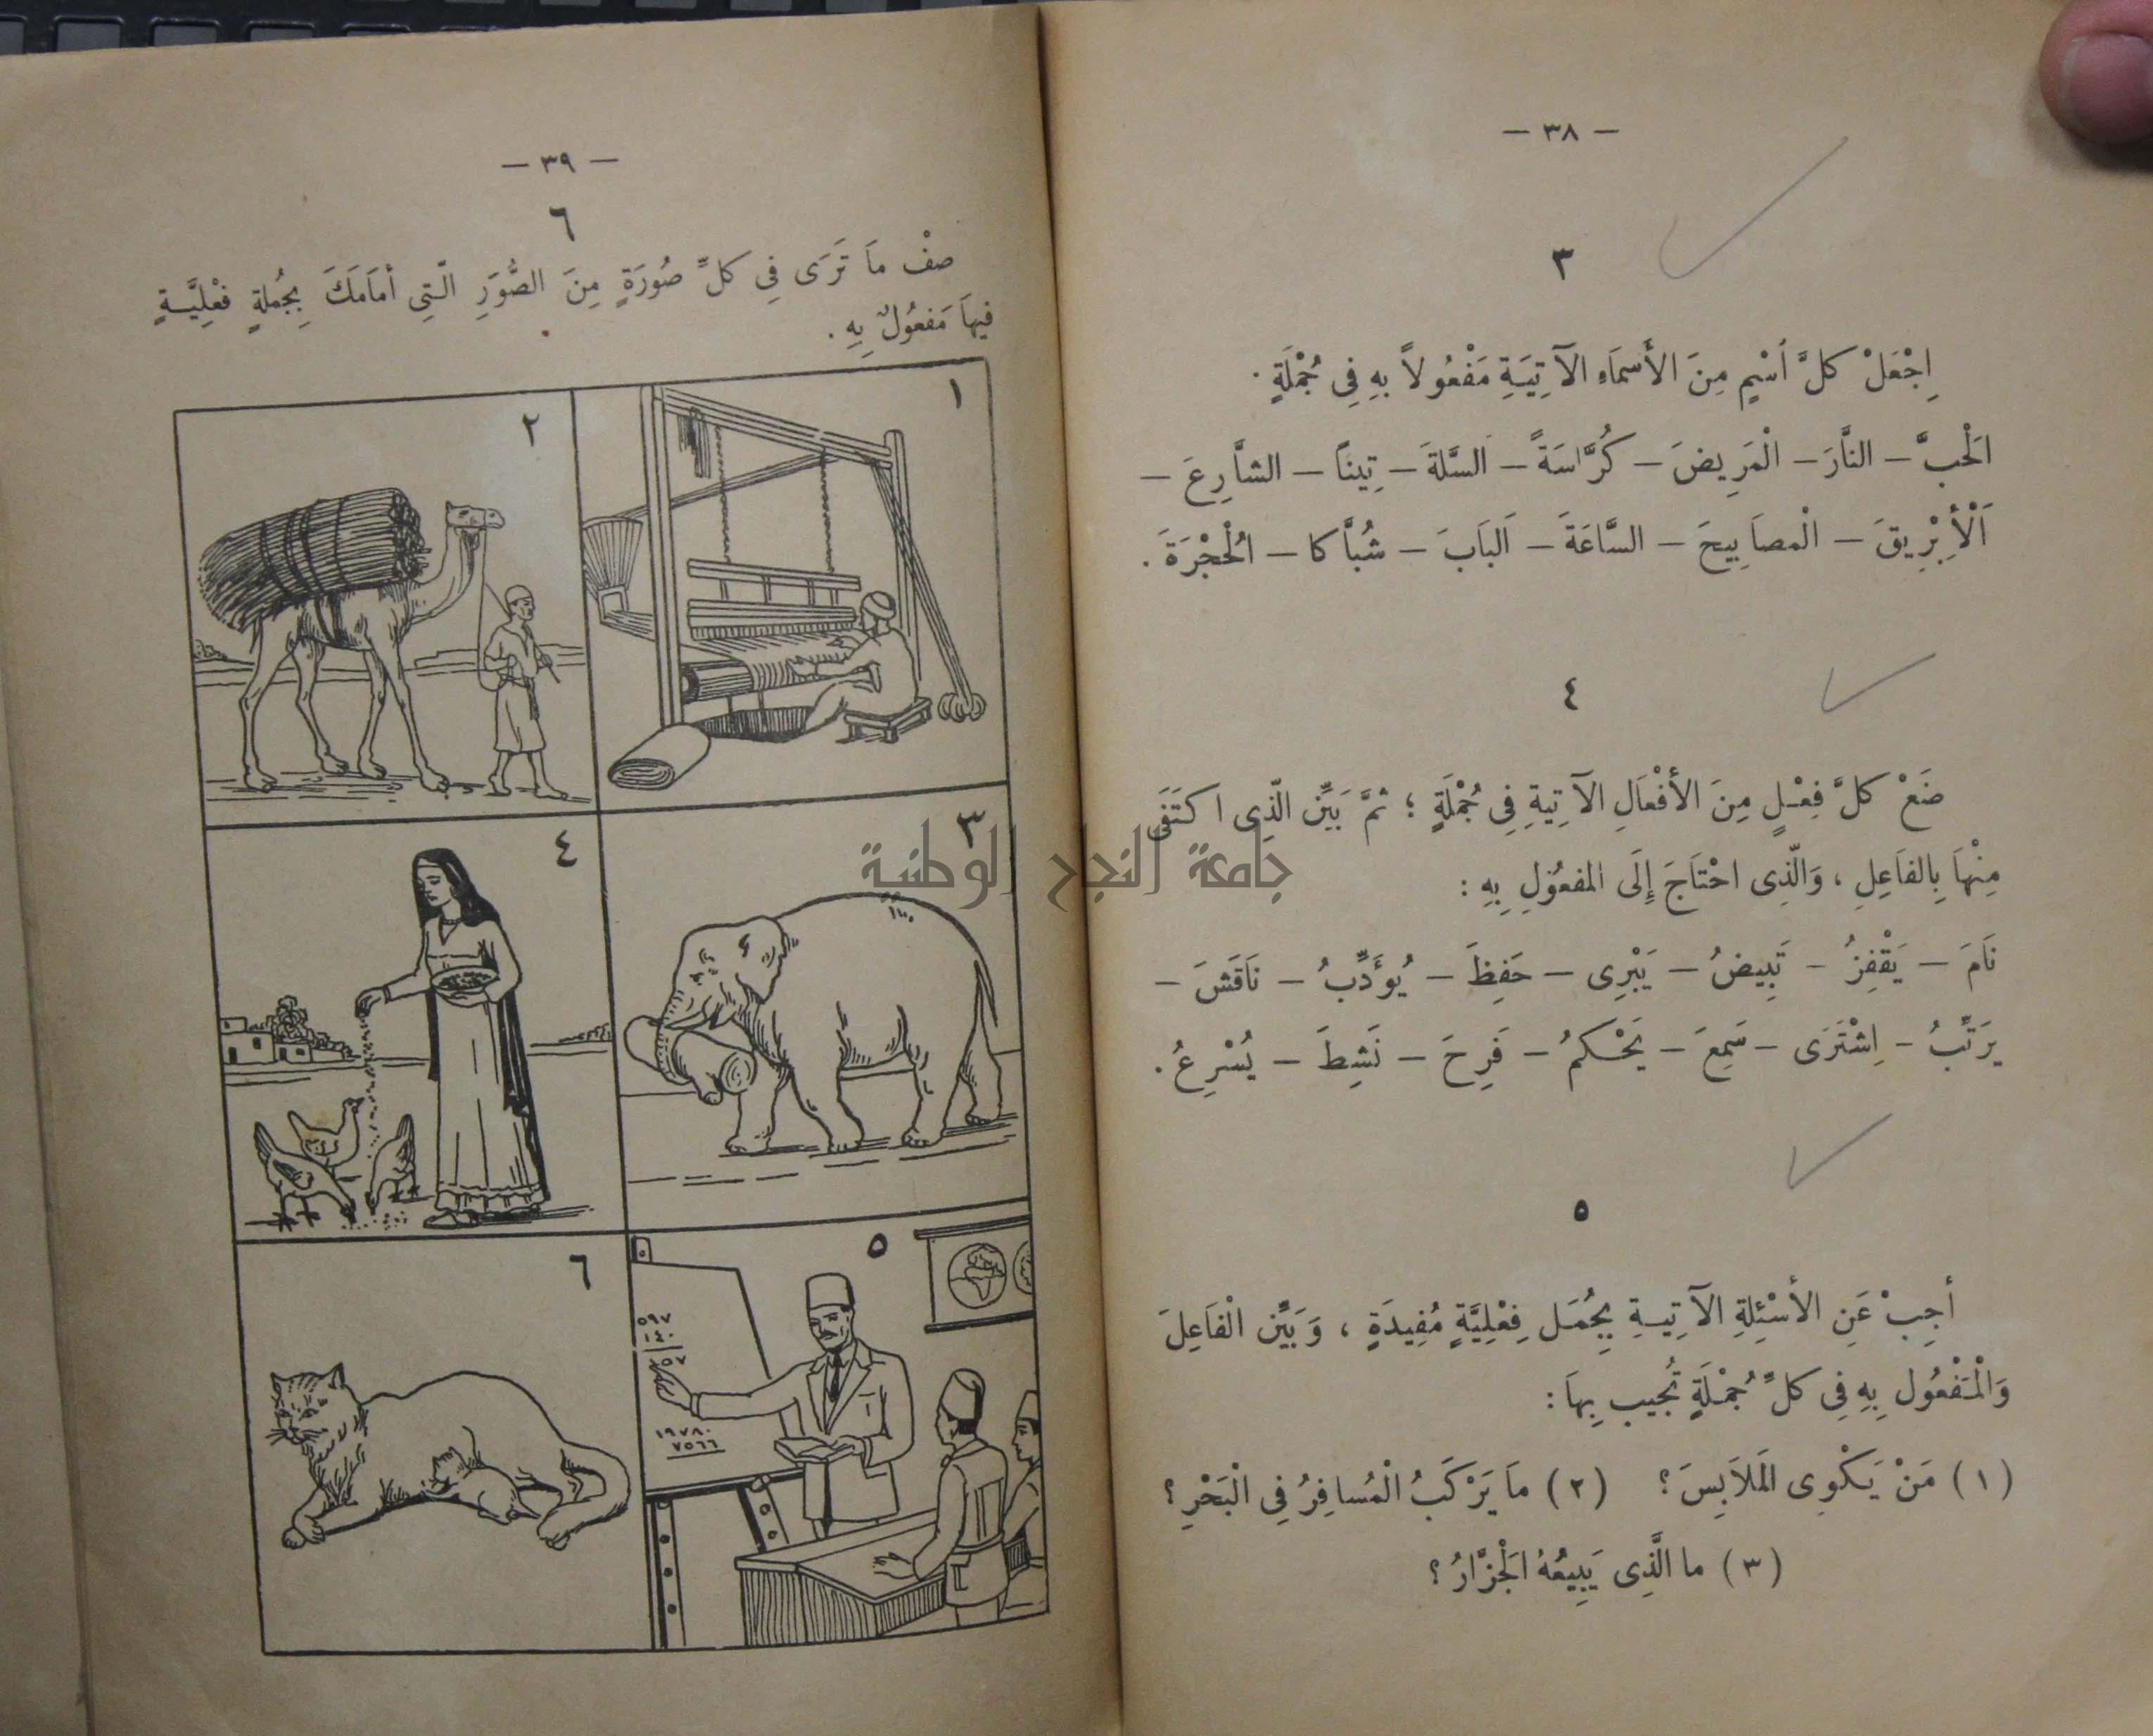 — ٣٨ —
٣
اِجْعَلْ كلَّ اَسْمٍ مِنَ الأَسمَاءِ الآتِيَةِ مَفْعُولاً بهِ فِى جُمْلَةٍ .
الْحَبَّ – النَّارَ – الْمَرِيضَ – كُرَّاسَةً – السَّلةَ – تِيناً – الشَّارِعَ –
اَلْأَبْرِيقَ – الْمصَابِيحَ – السَّاعَةَ – اَلبَابَ – شُبَّاكا – الْحُجْرَةَ .
٤
ضَعْ كلَّ فِعْلٍ مِنَ الأفْعَالِ الآتِيةِ فِى جُمْلَةٍ ؛ ثمَّ بَيِّن الّذِى اكتَفَى
مِنْهَا بِالفَاعِلِ ، وَالّذِى احْتَاجَ إِلَى المفعُولِ بِهِ :
نَامَ – يَقْفِزُ – تَبِيضُ – يَبْرِى – حَفِظَ – يُؤَدِّبُ – نَاقَشَ –
يرَتِّبُ – اِشْتَرَى – سَمِعَ – يَحْكمُ – فَرِحَ – نَشِطَ – يُسْرِعُ .
٥
أجِبْ عَنِ الأسْئِلةِ الآتِيةِ بِجُمَل فِعْلِيَّةٍ مُفِيدَةٍ ، وَبَيِّن الْفَاعِلَ
وَالْمَفْعُول بِهِ فِى كلِّ جُمْلَةٍ تُجيب بِهَا :
(١) مَنْ يَكْوِى المَلَابِسَ ؟ (٢) مَا يَرْكَبُ الْمُسافِرُ فِى الْبَحْرِ ؟
(٣) ما الَّذِى يَبِيعُهُ الْجَزَّارُ ؟
— ٣٩ —
٦
صفْ مَا تَرَى فِى كلِّ صُورَةٍ مِنَ الصُّوَرِ الّتِى أمَامَكَ بِجُملةٍ فعْلِيَّةٍ
فيهَا مَفعُولٌ بِهِ .
١
٢
٣
٤
٥
٥٩٧
١٤٠
٥٧
١٩٧٨٠
٧٥٦٦
٦
جامعة النجاح الوطنية